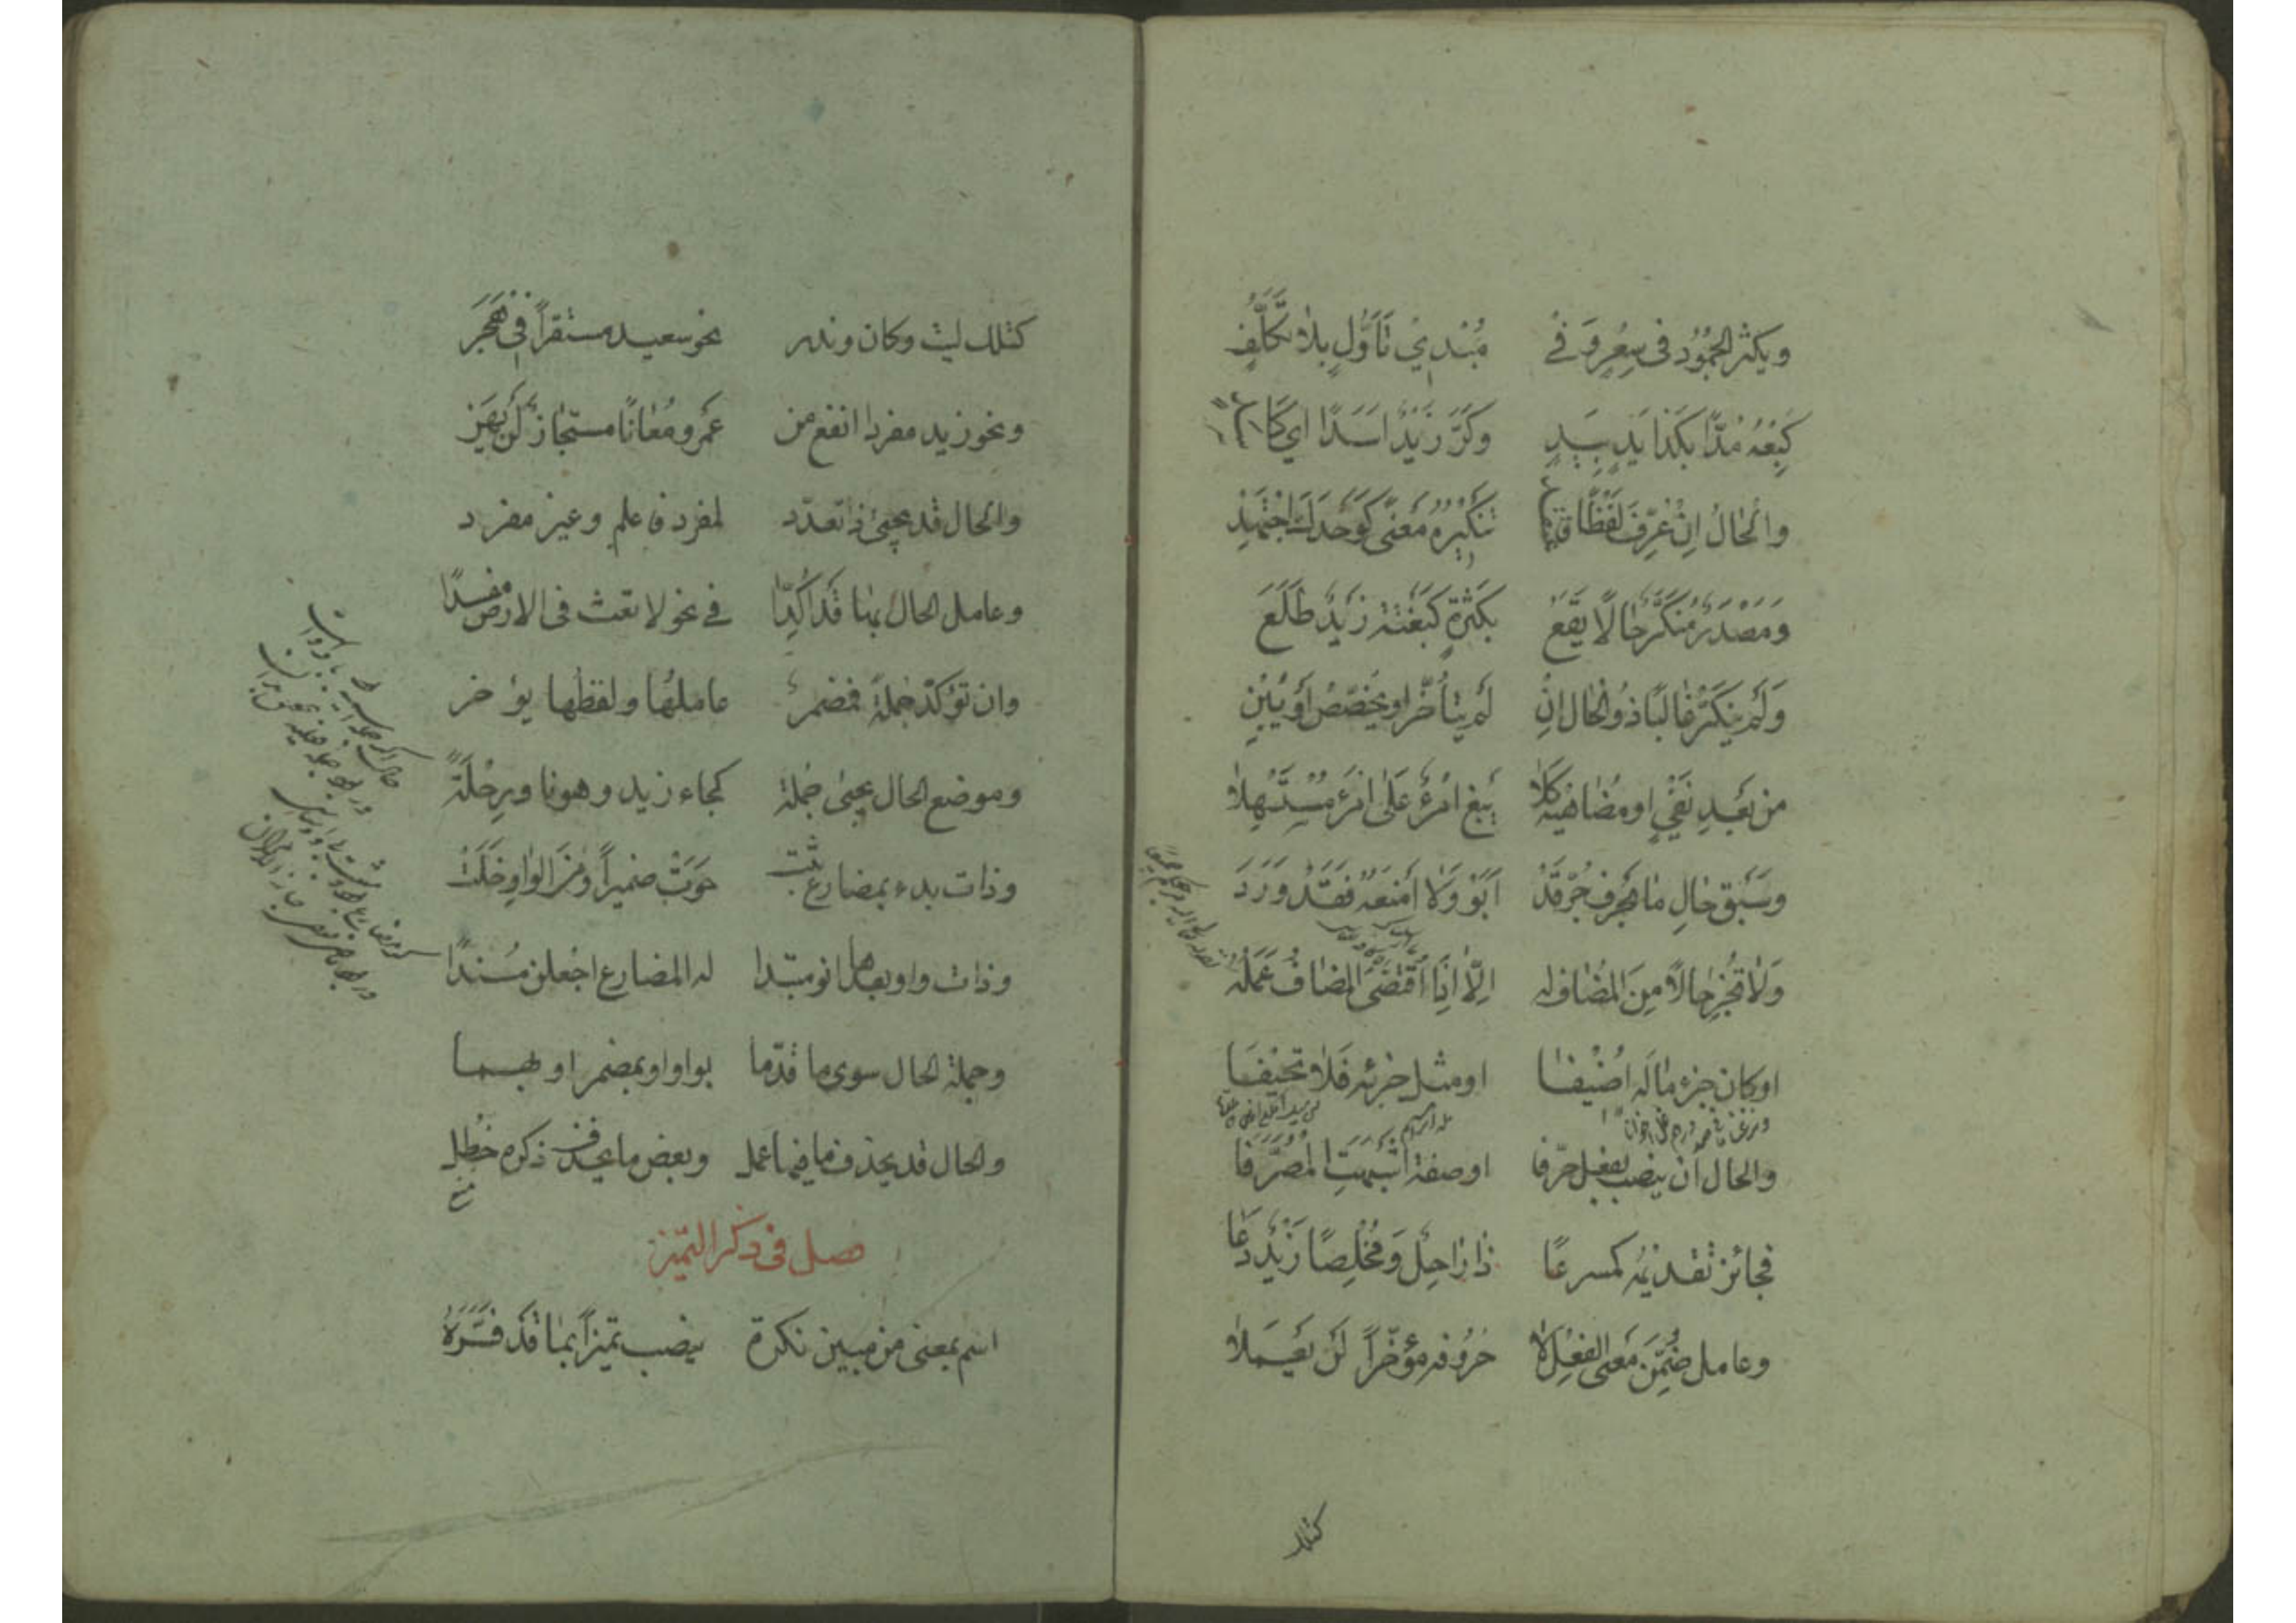 ويكثر الجُمُودُ فى سِعْرٍ وَ فى مُبْدِىْ تَأَوُّلٍ بِلاٰ تَكَلُّفِ
كَبِعْهُ مُدًّا بِكَذا يَدٍ بِيَدٍ وَكَرَّ زَيْدٌ اَسَدًا اى كَأَسَدْ
وَالْحٰالُ اِنْ عُرِّفَ لَفْظًا فَاعْتَقِدْ تَنْكِيرَهُ مَعْنًى كَوَحْدَكَ اجْتَهِدْ
وَمَصْدَرٌ مُنَكَّرٌ حٰالًا يَقَعْ بِكَثْرَةٍ كَبَغْتَةً زَيْدٌ طَلَعَ
وَلَمْ يُنَكَّرْ غٰالِبًا ذُو الْحٰالِ اِنْ لَمْ يَتَأَخَّرْ او يُخَصَّصْ أَوْ يَبِنْ
من بَعْدِ نَفْىٍ او مُضٰاهِيهِ كَلاٰ يَبْغِ امْرُءٌ عَلَى امْرِءٍ مُسْتَسْهِلاٰ
وَسَبْقَ حٰالِ مٰا بِحَرْفٍ جُرَّ قَدْ اَبَوْ وَلاٰ أَمْنَعُهُ فَقَدْ وَرَدَ
وَلاٰ تُجِزْ حٰالاً مِنَ المُضٰاف له اِلّاٰ اِذَا اقْتَضَى المُضٰافُ عَمَلَهُ
او كان جزء مٰا لَه اُضْيفٰا او مثل جزئه فَلاٰ تَحيْفَا
والحال أن ينصب بفعل صرّفا او صفة اَشْبَهَتِ الْمُصَرَّفٰا
فجائز تقديمُه كمسرعًا ذٰا رٰاحِلٌ وَ مُخْلِصًا زَيْدٌ دَعٰا
وعامل ضُمِّنَ مَعْنَى الفِعْلِ لاٰ حُرُوفه مؤخّراً لَنْ يَعْمَلاٰ
كتلك
كتلك ليت وكان وندر نحو سعيد مستقراً فى هَجَرَ
ونحو زيد مفرداً انفع من عَمْرو مُعٰانًا مستجازٌ لَنْ يَهِنَ
والحال قد يجىئ ذا تعدّد لمفرد فاعلم وغير مفرد
وعامل الحال بهٰا قَدْ اُكِّدٰا فى نحو لا تعث فى الارض مفسدًا
وان تؤكّد جملةً فمضمرٌ عاملهٰا ولفظهٰا يؤخر
وموضع الحال يجىئ جُملة كجاء زيد وهو ناوٍ رِحْلَةً
وذات بدء بمضارع ثبت حَوَتْ ضميراً وَ مِنَ الواوِ خَلَتْ
وذات واو بعدها انو مبتدا له المضارع اجعلن مُسْندًا
وجملة الحال سوى ما قدّما بواو او بمضمر او بهما
والحال قد يحذف ما فيها عمل وبعض ما يحذف ذكره حُظِل
منع
فصل فى ذكر التميّز
اسم بمعنى من مبين نكرة ينصب تميزاً بمٰا قَدْ فَسَّرَهُ